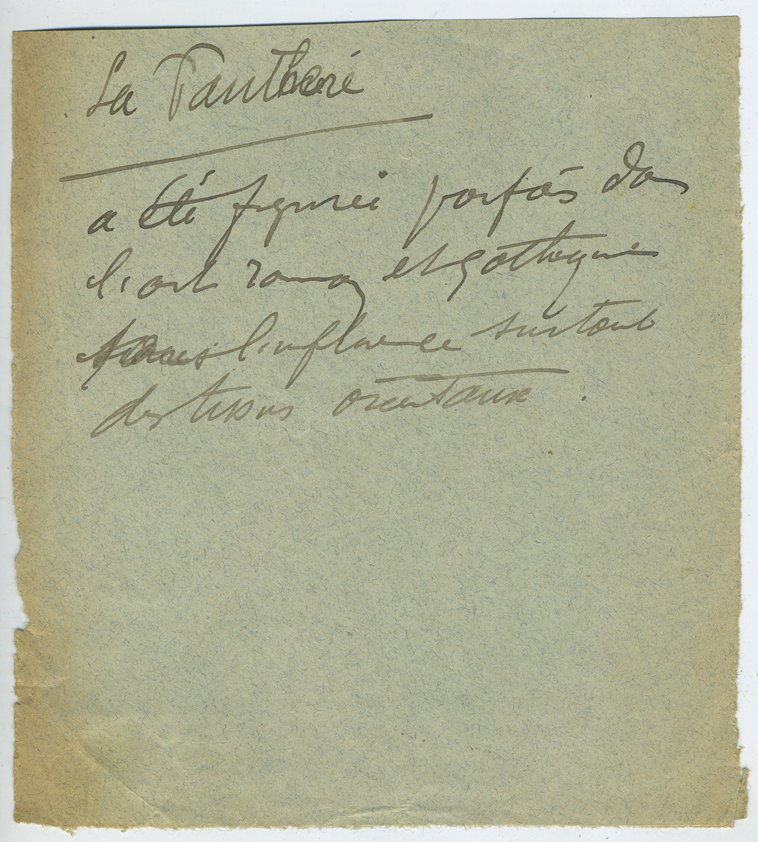 La Panthère
a été figurée parfois dans
l'art roman et gothique
sous l'influence surtout
des tissus orientaux.